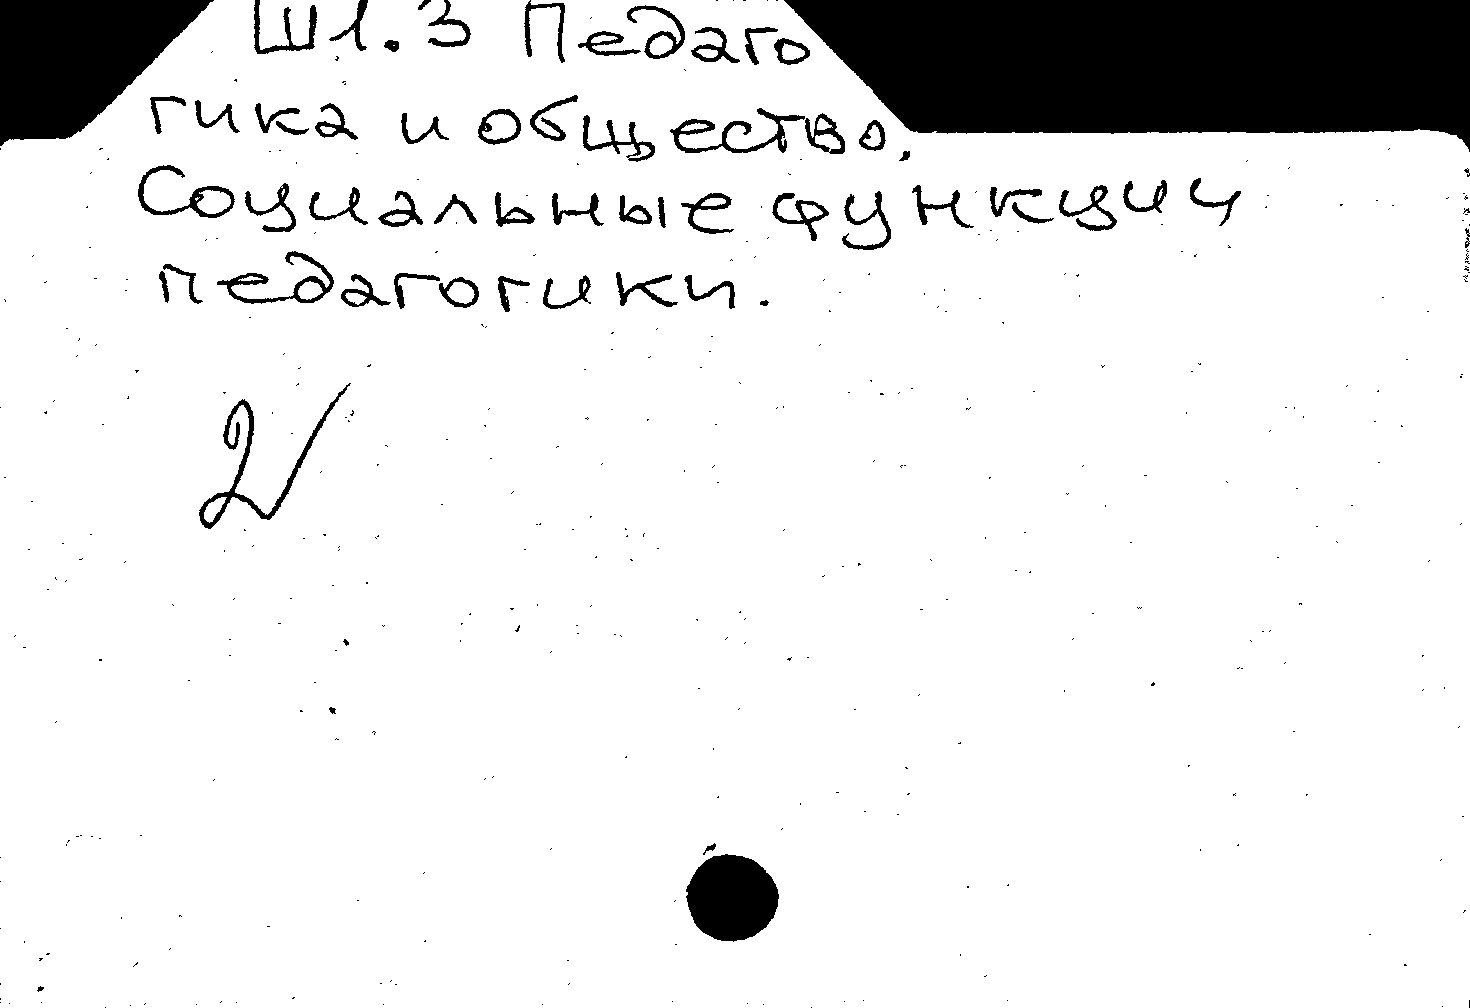 Ш1.3 Педаго
гика и общество.
Социальные функции
педагогики.